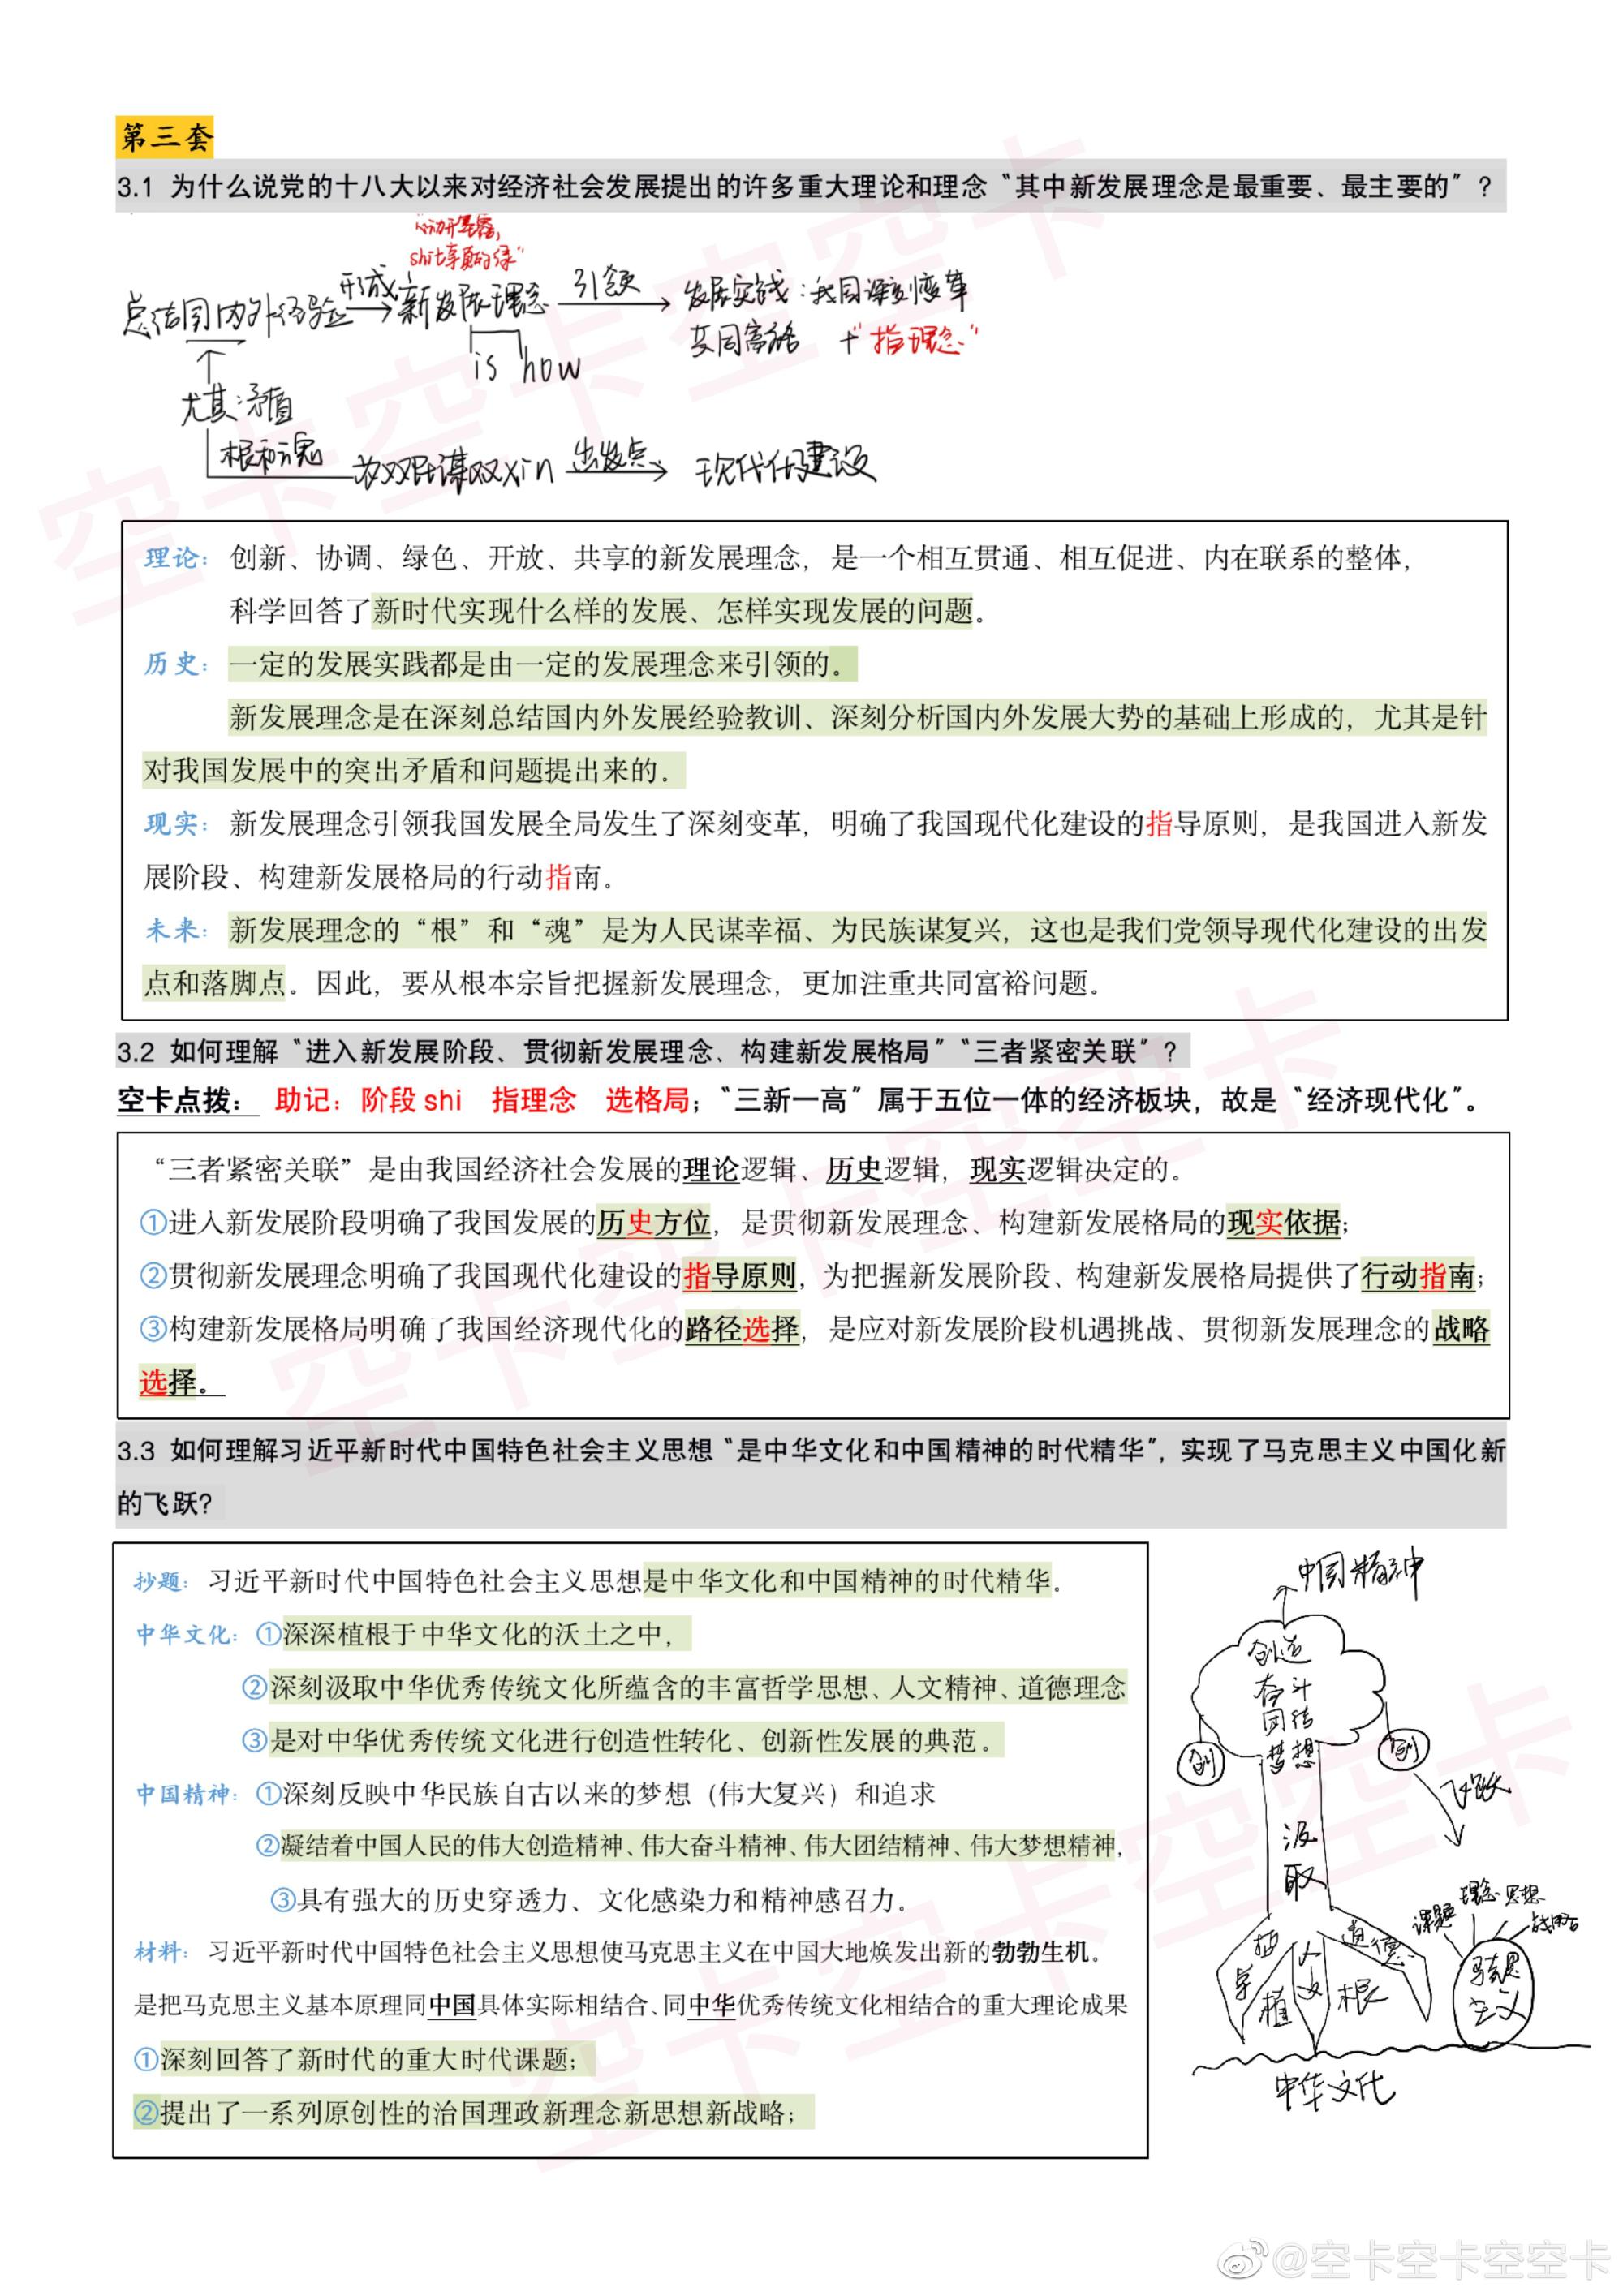 第三套
3.1 为什么说党的十八大以来对经济社会发展提出的许多重大理论和理念“其中新发展理念是最重要、最主要的”?
shit享更的绿”
总结国内外经验 形成 新发展理念 引领 发展实践:我国深刻变革
共同富裕 +“指理念”
is how
尤其:矛盾
根和魂 为双民谋双xin 出发点 现代化建设
理论: 创新、协调、绿色、开放、共享的新发展理念,是一个相互贯通、相互促进、内在联系的整体,
科学回答了新时代实现什么样的发展、怎样实现发展的问题。
历史: 一定的发展实践都是由一定的发展理念来引领的。
新发展理念是在深刻总结国内外发展经验教训、深刻分析国内外发展大势的基础上形成的,尤其是针
对我国发展中的突出矛盾和问题提出来的.
现实: 新发展理念引领我国发展全局发生了深刻变革,明确了我国现代化建设的指导原则,是我国进入新发
展阶段、构建新发展格局的行动指南.
未来: 新发展理念的“根”和“魂”是为人民谋幸福、为民族谋复兴,这也是我们党领导现代化建设的出发
点和落脚点。因此,要从根本宗旨把握新发展理念,更加注重共同富裕问题.
3.2 如何理解“进入新发展阶段、贯彻新发展理念、构建新发展格局”“三者紧密关联”?
空卡点拨: 助记:阶段 shi 指理念 选格局;“三新一高”属于五位一体的经济板块,故是“经济现代化”。
“三者紧密关联”是由我国经济社会发展的理论逻辑、历史逻辑,现实逻辑决定的。
①进入新发展阶段明确了我国发展的历史方位,是贯彻新发展理念、构建新发展格局的现实依据;
②贯彻新发展理念明确了我国现代化建设的指导原则,为把握新发展阶段、构建新发展格局提供了行动指南;
③构建新发展格局明确了我国经济现代化的路径选择,是应对新发展阶段机遇挑战、贯彻新发展理念的战略
选择。
3.3 如何理解习近平新时代中国特色社会主义思想“是中华文化和中国精神的时代精华”,实现了马克思主义中国化新
的飞跃?
抄题: 习近平新时代中国特色社会主义思想是中华文化和中国精神的时代精华.
中华文化: ①深深植根于中华文化的沃土之中,
②深刻汲取中华优秀传统文化所蕴含的丰富哲学思想、人文精神、道德理念
③是对中华优秀传统文化进行创造性转化、创新性发展的典范。
中国精神: ①深刻反映中华民族自古以来的梦想(伟大复兴)和追求
②凝结着中国人民的伟大创造精神、伟大奋斗精神、伟大团结精神、伟大梦想精神,
③具有强大的历史穿透力、文化感染力和精神感召力.
材料: 习近平新时代中国特色社会主义思想使马克思主义在中国大地焕发出新的勃勃生机。
是把马克思主义基本原理同中国具体实际相结合、同中华优秀传统文化相结合的重大理论成果
①深刻回答了新时代的重大时代课题;
②提出了一系列原创性的治国理政新理念新思想新战略;
中国精神
创造
奋斗
团结
梦想
创
创
飞跃
汲
取
哲学
人文
道德
植
根
课题
理念
思想
战略
马克思
主义
中华文化
@空卡空卡空空卡